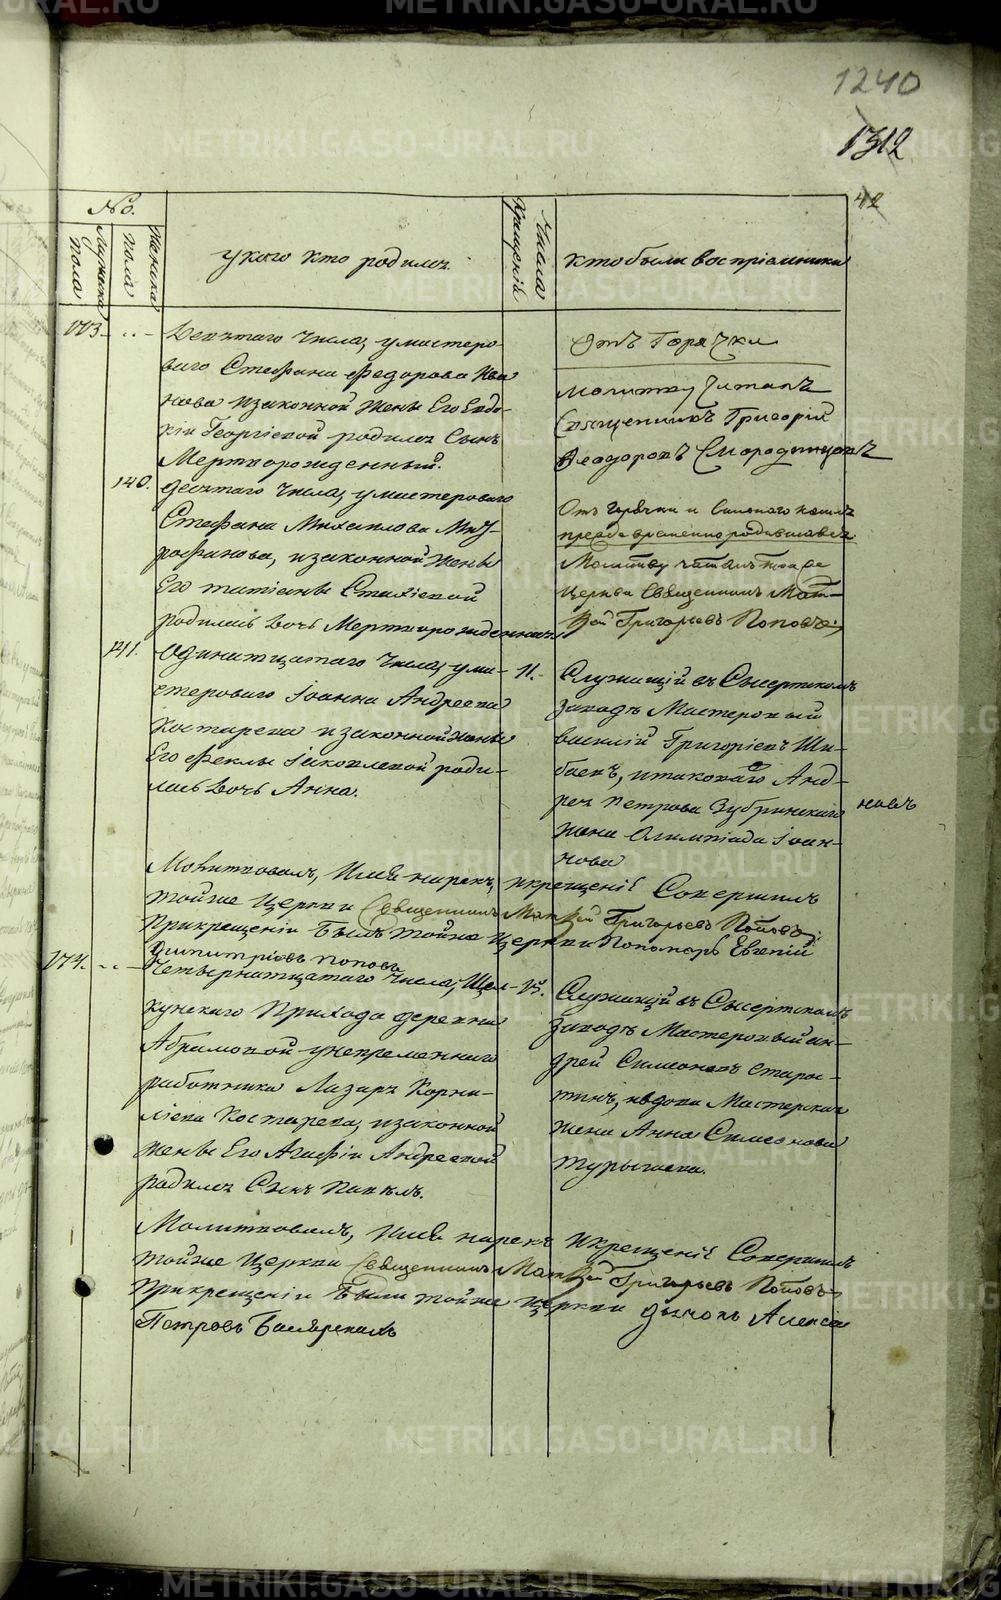 METRIKI.GASO-URAL.RU
1240
1312
42
No.
Мужеска пола
Женска пола
у кого кто родился
Числа Крещенiй
кто были воспрiемники
173
Девятаго числа, у мастеро-
ваго Стефана Федорова Ива
нова изаконной жены Его Евдо-
кiи Георгiевой родился Сынъ
Мертворожденный.
Отъ Горячки
Молитву Читалъ
Священникъ Григорiй
Феодоровъ Смородинцовъ
140.
десятаго числа, умастероваго
Стефана Михайлова Мит-
рофанова, изаконной жены
Его татiаны Стахiевой
родилась дочь Мертворожденная
Отъ горячки и сильнаго кашля
преждевременно родившаяся
Молитву читалъ тояже
Церкви Священникъ Мат-
вей Григорьевъ Поповъ
141.
Одинатцатаго числа, ума-
стероваго Iоанна Андреева
Костарева изаконной жены
Его Феклы Iаковлевой роди-
лась дочь Анна.
11.
Служащiй въ Сысертскомъ
заводѣ Мастеровый
василiй Григорiевъ Ши-
баевъ, итаковаго Анд-
рея Петрова Зубринскаго
жена Олимпiада Iоан-
нова
Молитвовалъ, Имя нарекъ, икрещенiе Совершилъ
тойже Церкви Священникъ Матвей Григорьевъ Поповъ
Прикрещенiи Былъ тойже Церкви Пономарь Евгенiй
Димитрiевъ Поповъ
174.
Четырнатцатаго числа, Щел-
кунскаго Прихода деревни
Абрамовой унепременнаго
работника Лазаря Корни-
лiева Костарева, изаконной
жены Его Агафiи Андреевой
родился Сынъ Павелъ.
15.
Служащiй въ Сысертскомъ
заводѣ Мастеровый ан-
дрей Симеоновъ Старос-
тинъ, ивдова Мастерская
жена Анна Симеонова
Турыгина.
Молитвовалъ, Имя нарекъ икрещенiе Совершилъ
тойже Церкви Священникъ Матвей Григорьевъ Поповъ
Прикрещенiи Былъ тойже Церкви дьячокъ Алексiй
Петровъ